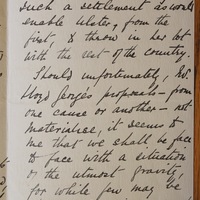 such a settlement as would
enable Ulster, from the
first, to throw in her lot
with the rest of the country.
Should unfortunately, Mr
Lloyd George's proposals – from
one cause or another – not
materialise, it seems to
me that we shall be face
to face with a situation
of the utmost gravity,
for while few may be